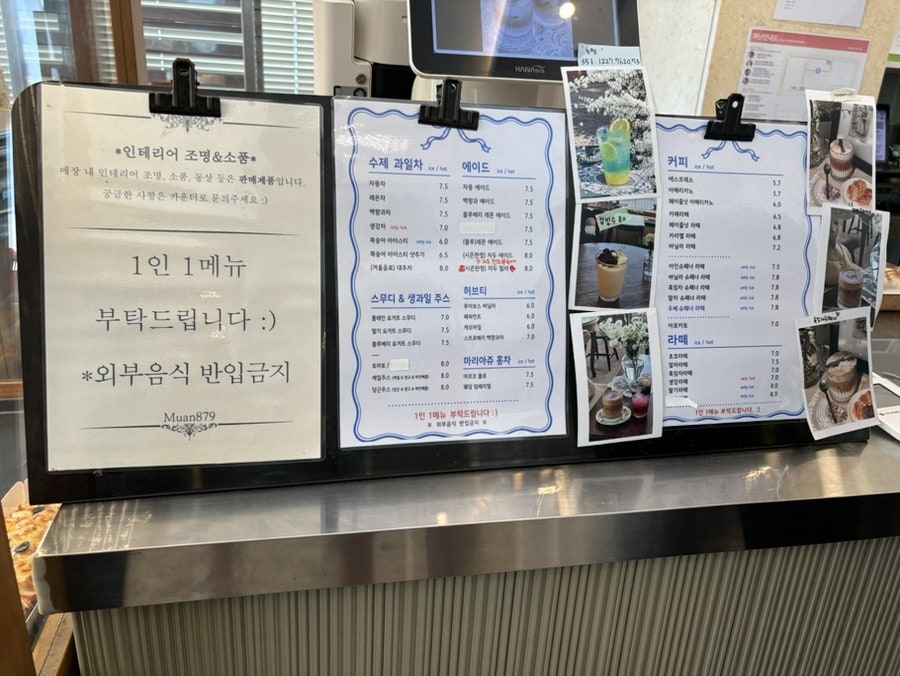 *인테리어 조명&소품*
매장 내 인테리어 조명, 소품, 동상 등은 판매제품입니다.
궁금한 사항은 카운터로 문의주세요 :)
1인 1메뉴
부탁드립니다 :)
*외부음식 반입금지
Muan879
수제 과일차 ice / hot
자몽차 7.5
레몬차 7.5
백향과차 7.5
생강차 only hot 7.0
복숭아 아이스티 only ice 6.0
복숭아 아이스티 샷추가 6.5
(겨울음료) 대추차 8.0
스무디 & 생과일 주스
플레인 요거트 스무디 7.0
딸기 요거트 스무디 7.5
블루베리 요거트 스무디 7.5
토마토 / 8.0
케일주스 8.0
당근주스 8.0
에이드 ice / hot
자몽 에이드 7.5
백향과 에이드 7.5
블루베리 레몬 에이드 7.5
7.5
(블루)레몬 에이드 7.5
(시즌한정) 자두 에이드 8.0
(시즌한정) 자두 릴러 8.0
허브티 ice / hot
루이보스 바닐라 6.0
페퍼민트 6.0
캐모마일 6.0
스트로베리 백향과차 7.0
마리아쥬 홍차 ice / hot
마르코 폴로 7.5
웨딩 임페리얼 7.5
1인 1메뉴 부탁드립니다 :)
※ 외부음식 반입금지 ※
HANASIS
351 1227.762073
컵빙수 8.0
커피 ice / hot
에스프레소 5.7
아메리카노 5.7
헤이즐넛 아메리카노 6.0
카페라떼 6.5
헤이즐넛 라떼 6.8
카라멜 라떼 6.8
바닐라 라떼 7.2
아인슈페너 라떼 only ice 7.5
바닐라 슈페너 라떼 only ice 7.8
흑임자 슈페너 라떼 only ice 7.8
말차 슈페너 라떼 only ice 7.8
쑥떼 슈페너 라떼 only ice 7.8
아포카토 7.0
라떼 ice / hot
초코라떼 7.5
말차라떼 7.5
흑임자라떼 7.5
생강라떼 only hot 7.0
딸기라떼 only ice 8.0
only ice 8.0
1인 1메뉴 부탁드립니다 :)